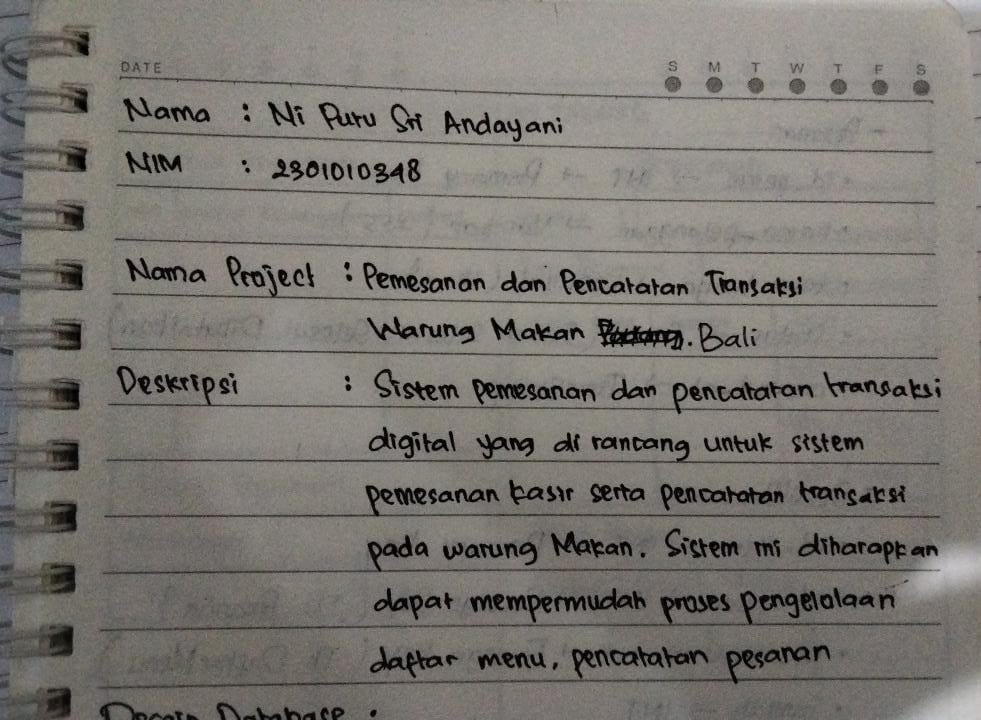 DATE S M T W T F S
Nama : Ni Putu Sri Andayani
NIM : 2301010348
Nama Project : Pemesanan dan Pencatatan Transaksi
Warung Makan Bali
Deskripsi : Sistem pemesanan dan pencatatan transaksi
digital yang di rancang untuk sistem
pemesanan kasir serta pencatatan transaksi
pada warung Makan. Sistem ini diharapkan
dapat mempermudah proses pengelolaan
daftar menu, pencatatan pesanan
Database :